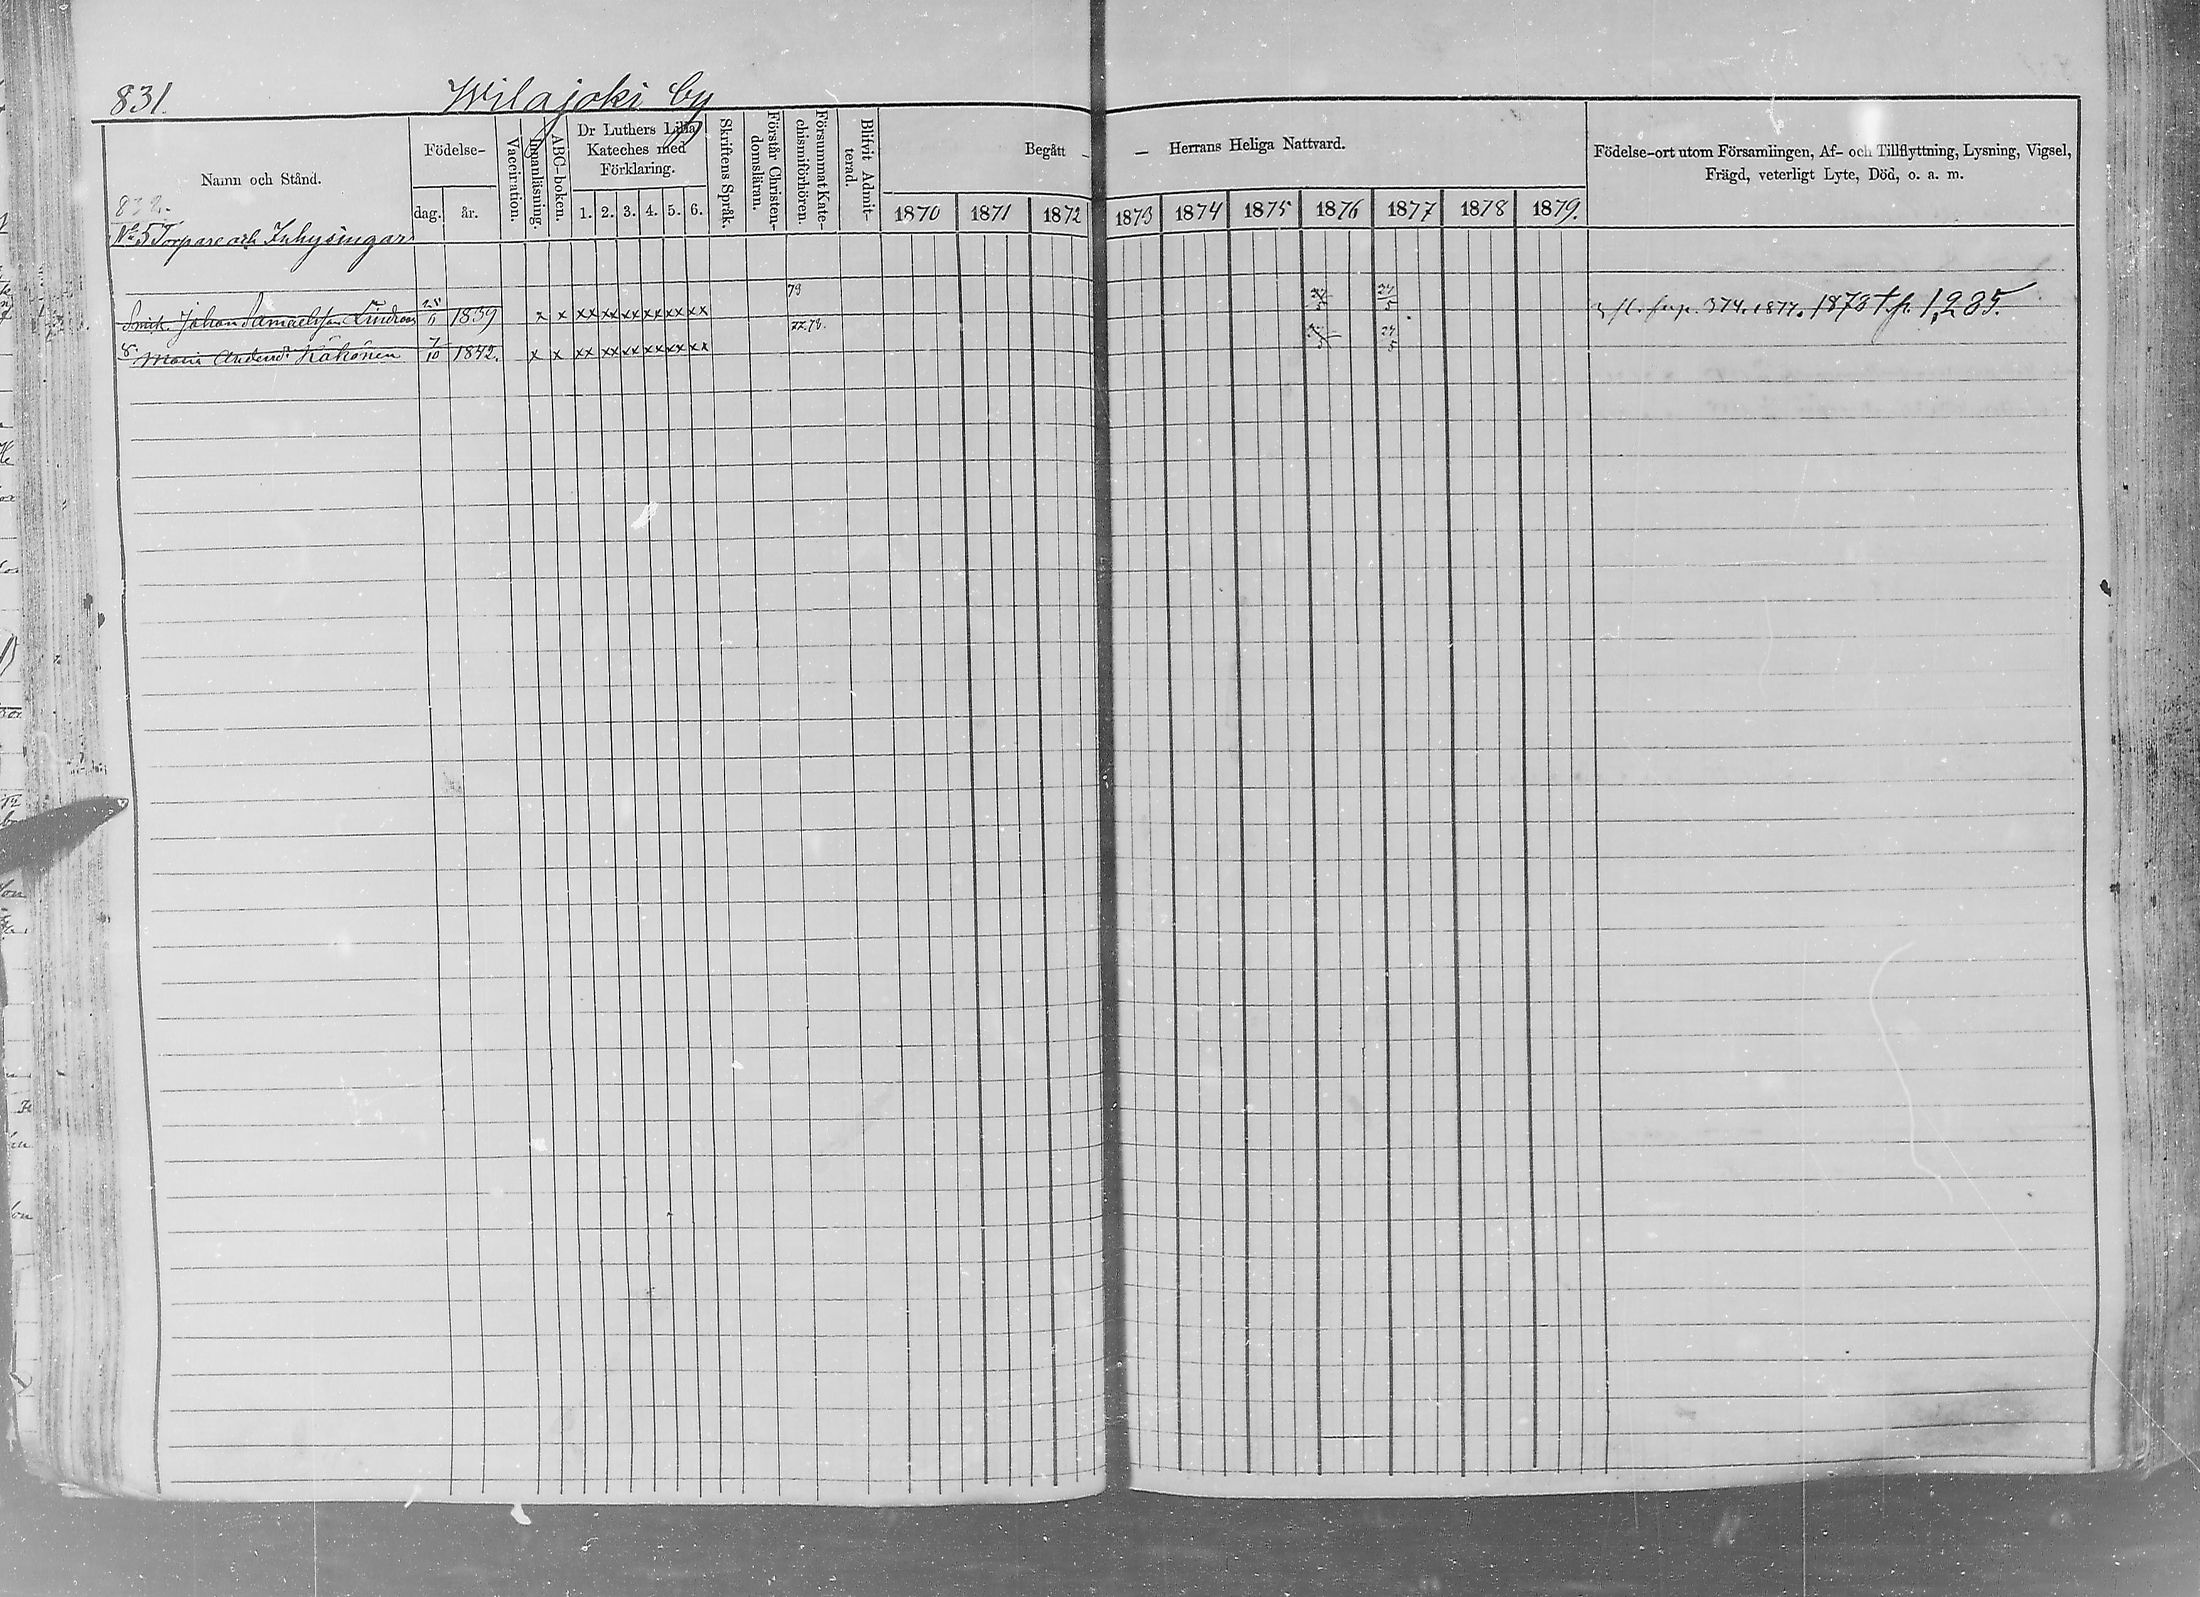 831.
Wilajoki by
Namn och Stånd.
Födelse-
dag.
år.
Vaccination.
Innanläsning.
ABC-boken.
Dr Luthers Lilla
Kateches med
Förklaring.
1. 2. 3. 4. 5. 6.
Skriftens Språk.
Förstår Christen-
domsläran.
Försummat Kate-
chismiförhören.
Blifvit Admit-
terad.
Begått —
— Herrans Heliga Nattvard.
1870 1871 1872 1873 1874 1875 1876 1877 1878 1879.
Födelse-ort utom Församlingen, Af- och Tillflyttning, Lysning, Vigsel,
Frägd, veterligt Lyte, Död, o. a. m.
832.
No 5 Torpare och Inhysingar
Smed. Johan Samuelsson 1839 x x xx xx xx xx xx xx 79 374. 1877. 1878 1,285.
Maria Andersdr 7/10 1842. x x xx xx xx xx xx xx 77.78.